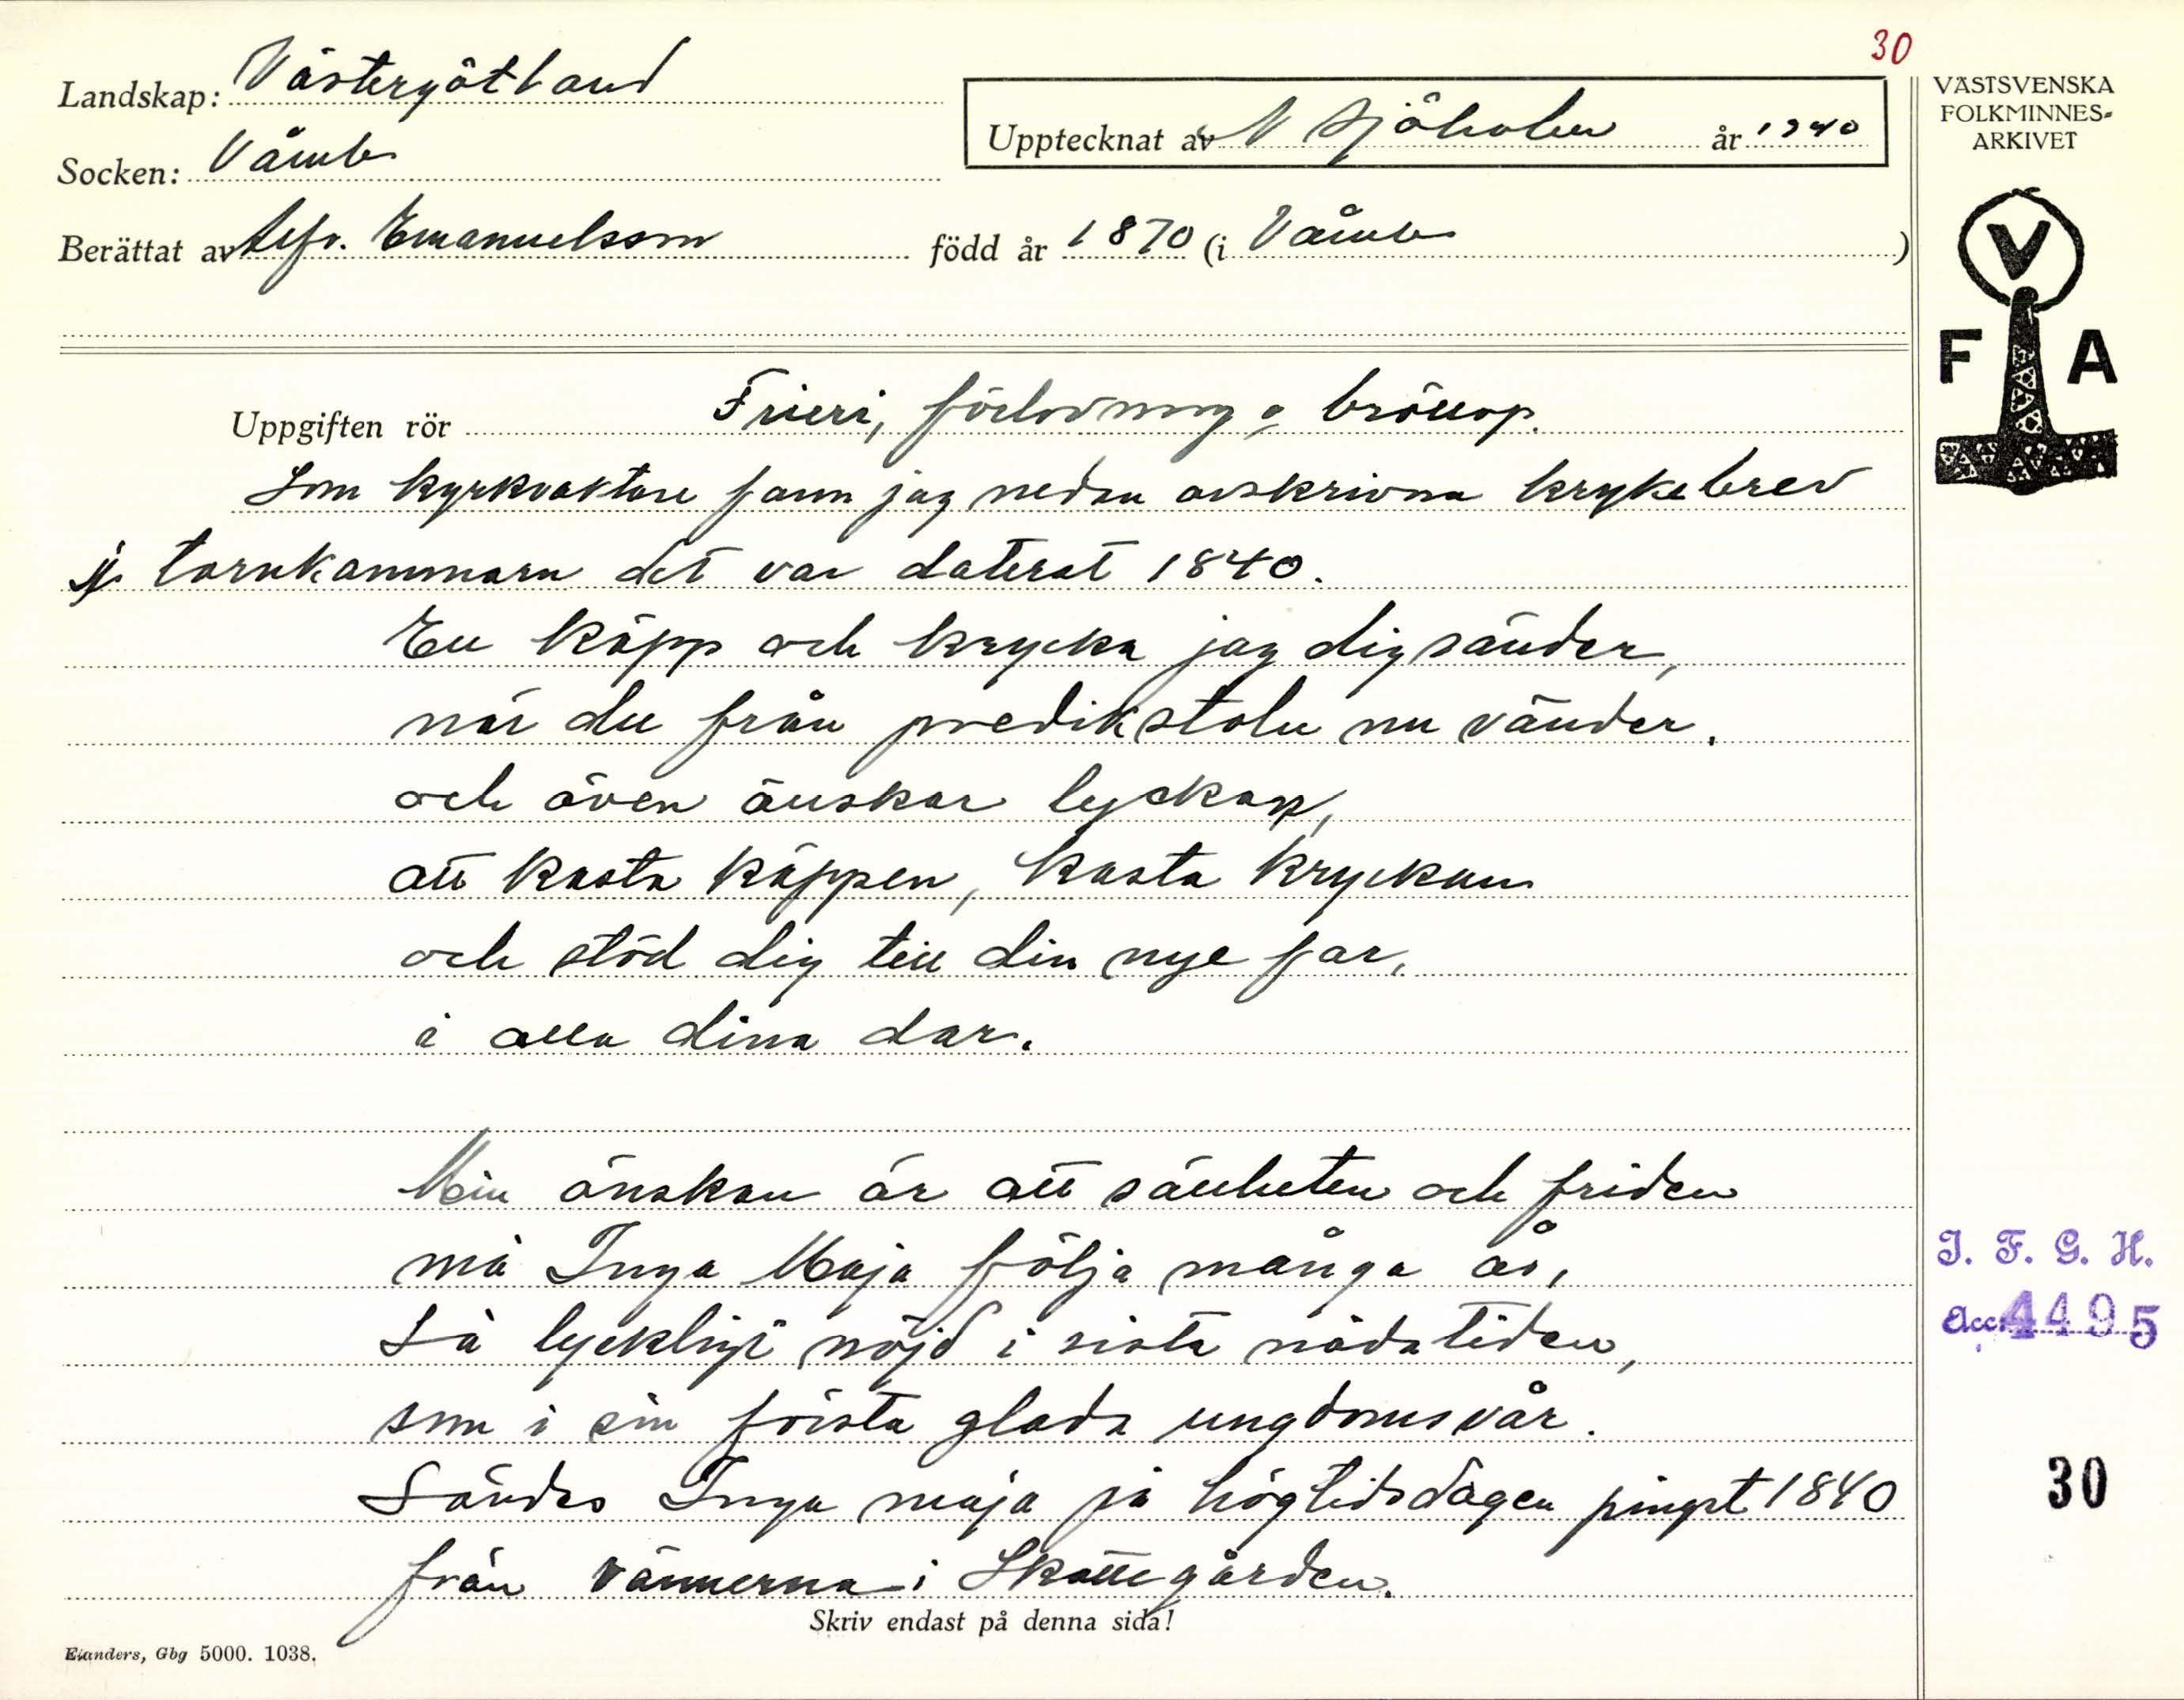 30
Landskap: Västergötland
Socken: Våmb
Upptecknat av N Sjöholm år 1940
Berättat av Alfr. Emanuelsson född år 1870 (i Våmb )
VÄSTSVENSKA
FOLKMINNES-
ARKIVET
V
F A
Uppgiften rör Frieri, förlovning o bröllop.
Som kyrkvaktare fann jag nedan avskrivna krykebrev
i tornkammarn det var daterat 1840.
En käpp och krycka jag dig sänder,
när du från predikstoln nu vänder.
och även önskar lyckan,
att kasta käppen, kasta kryckan
och stöd dig till din nye far,
i alla dina dar.
Min önskan är att sällheten och friden
må Inga Maja följa många år,
Så lyckligt nöjd i sista nådatiden,
som i sin första glada ungdomsvår.
Sändes Inga maja på högtidsdagen pingst 1840
från vännerna i Skattegården.
I. F. G. H.
Acc. 4495
30
Skriv endast på denna sida!
Elanders, Gbg 5000. 1038.